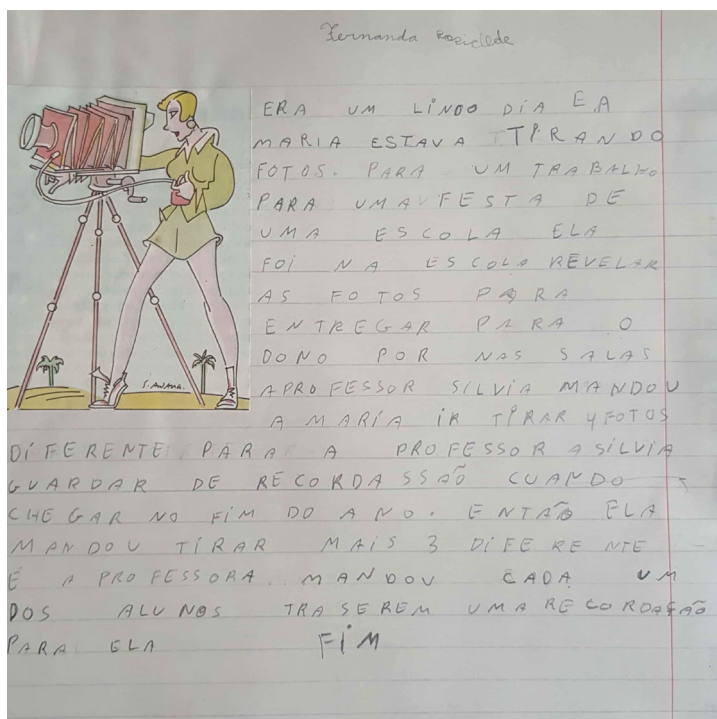 Fernanda Rosiclede
ERA UM LINDO DIA E A
MARIA ESTAVA TIRANDO
FOTOS. PARA UM TRABALHO
PARA UMA FESTA DE
UMA ESCOLA ELA
FOI NA ESCOLA REVELAR
AS FOTOS PARA
ENTREGAR PARA O
DONO POR NAS SALAS
A PROFESSOR SILVIA MANDOU
A MARIA IR TIRAR 4 FOTOS
DIFERENTE PARA A PROFESSOR A SILVIA
GUARDAR DE RECORDASSÃO CUANDO
CHEGAR NO FIM DO ANO. ENTÃO ELA
MANDOU TIRAR MAIS 3 DIFERENTE
E A PROFESSORA. MANDOU CADA UM
DOS ALUNOS TRASEREM UMA RECORDAÇÃO
PARA ELA FIM